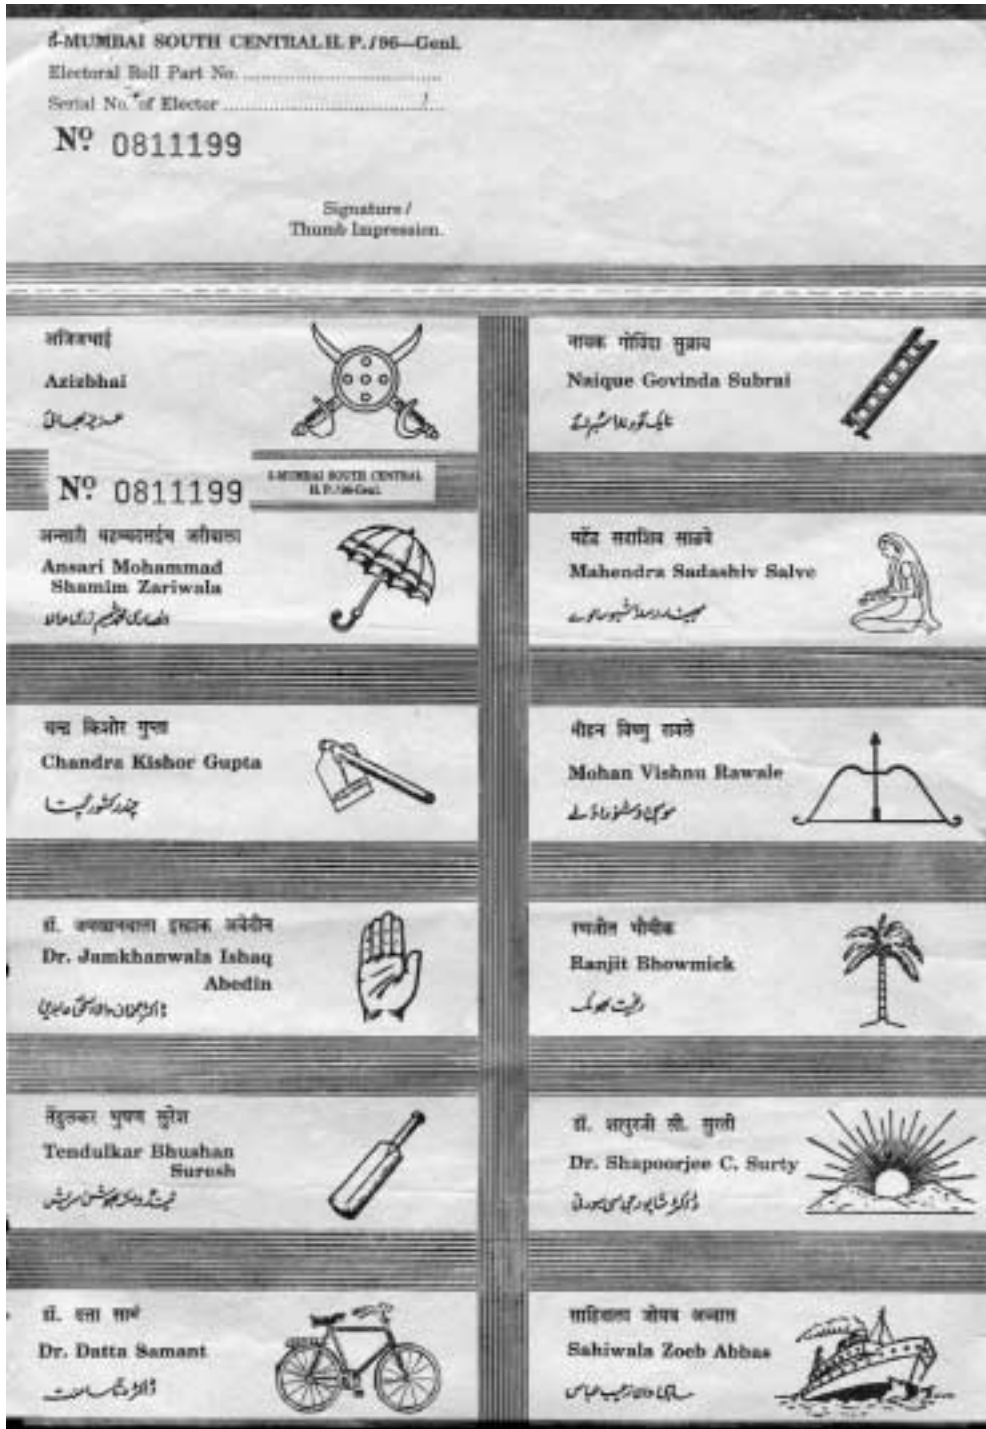 5-MUMBAI SOUTH CENTRAL H. P./96—Genl.
Electoral Roll Part No.
Serial No. of Elector
No. 0811199
Signature/
Thumb Impression.
अजिजभाई
Azizbhai
عزیز بھائی
No. 0811199
5-MUMBAI SOUTH CENTRAL
H. P./96-Genl.
अन्सारी महम्मद जरीवाला
Ansari Mohammad
Shamim Zariwala
انصاری محمد شمیم زری والا
चन्द्र किशोर गुप्ता
Chandra Kishor Gupta
چندر کشور گپتا
डॉ. जमखानवाला इसहाक अबेदीन
Dr. Jamkhanwala Ishaq
Abedin
ڈاکٹر جمخانہ والا اسحٰق عابدین
तेंडुलकर भुषण सुरेश
Tendulkar Bhushan
Suresh
डॉ. दत्ता सामंत
Dr. Datta Samant
ڈاکٹر دتا سامنت
नायक गोविंदा सुब्राय
Naique Govinda Subrai
महेंद्र सदाशिव साळवे
Mahendra Sadashiv Salve
मोहन विष्णु रावले
Mohan Vishnu Rawale
موہن وشنو راؤلے
रणजीत भौमीक
Ranjit Bhowmick
رنجیت بھومک
डॉ. शापुरजी सी. सुरती
Dr. Shapoorjee C. Surty
ڈاکٹر شاپورجی سی سورتی
साहिवाला जोएब अब्बास
Sahiwala Zoeb Abbas
ساہی والا زوئب عباس